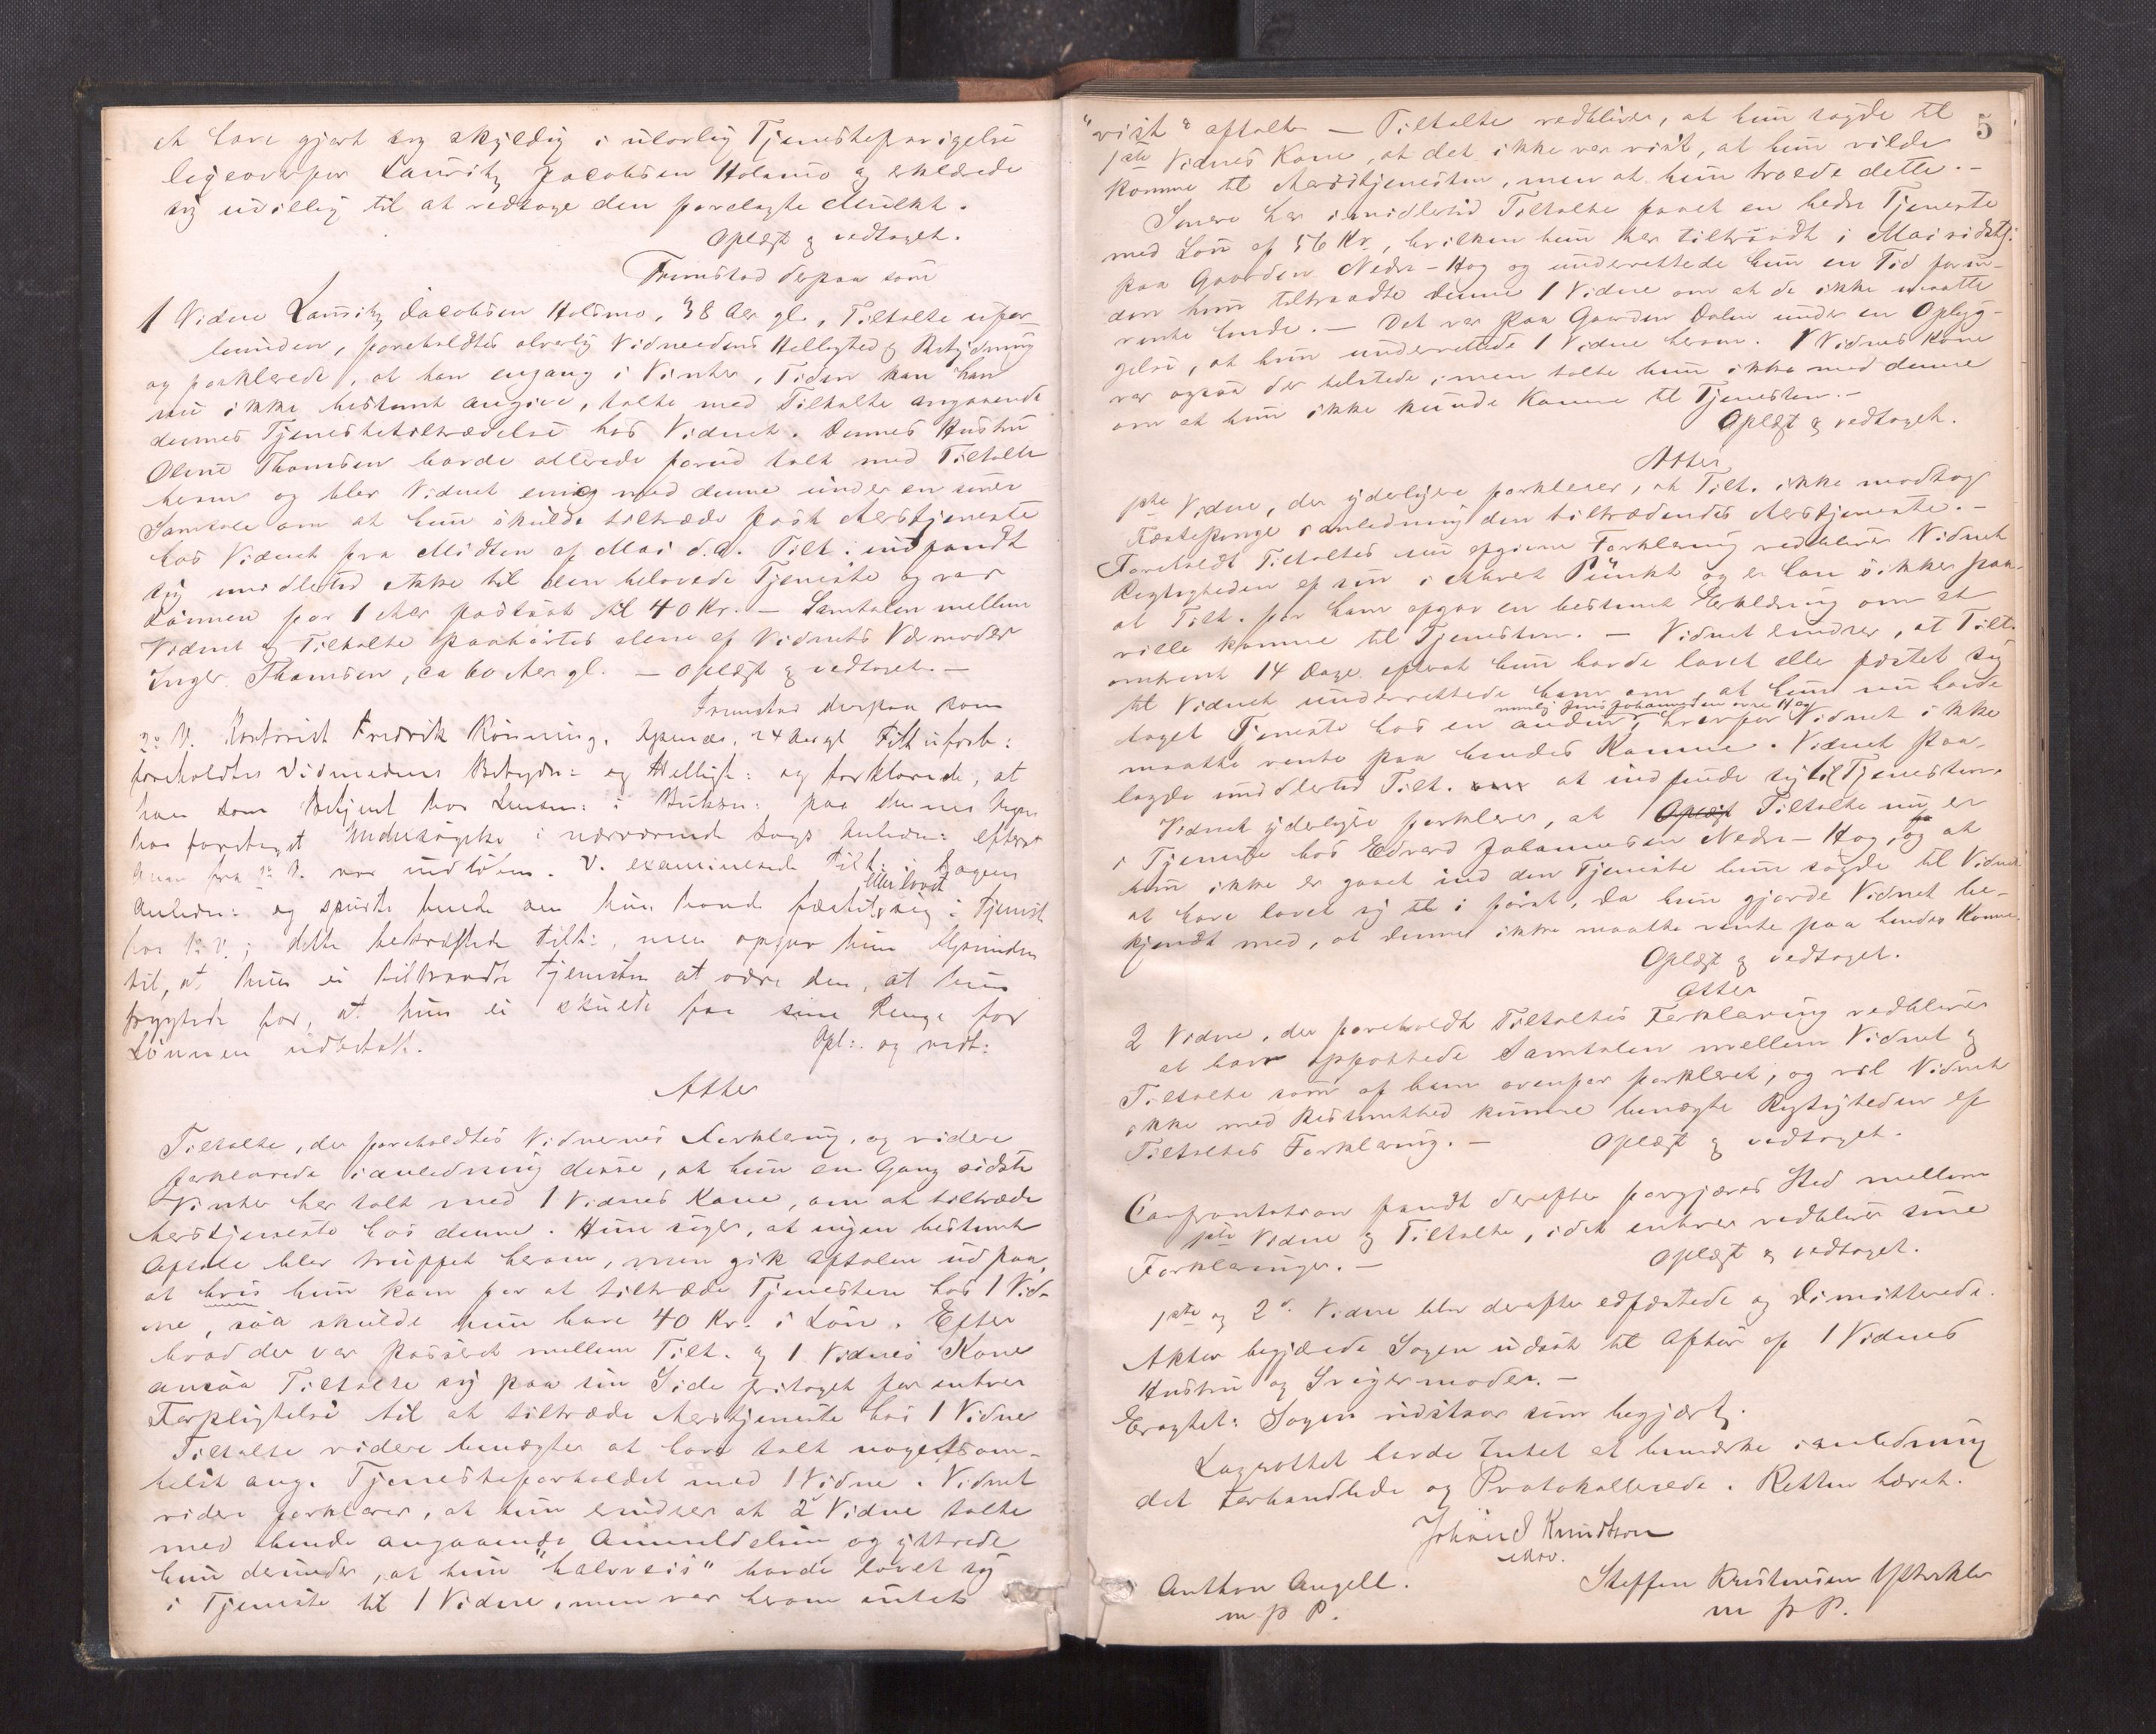 at have gjort sig skyldig i ulovlig Tjenesteforrigelse
ligeoverfor Lauritz Jacobsen Holsmo og erklærede
sig uvillig til at vedtage den forelagte Mulkt.
Oplæst & vedtaget.
Fremstod derpaa som
1 Vidne Lauritz Jacobsen Holsmo, 38 Aar gl., Tiltalte ufor-
bunden, foreholdtes alvorlig Vidneedens Hellighed & Betydning
og forklarede, at han engang i Vinter, Tiden kan han
nu ikke bestemt angive, talte med Tiltalte angaaende
dennes Tjenestetiltrædelse hos Vidnet. Dennes Hustru
Oline Thomsen havde allerede forud talt med Tiltalte
herom og blev Vidnet enig med denne under en senere
Samtale om at hun skulde tiltræde fast Aarstjeneste
hos Vidnet fra Midten af Mai d.A. Tilt. indfandt
sig imidlertid ikke til den belovede Tjeneste og var
Lønnen for 1 Aar fastsat til 40 Kr. — Samtalen mellem
Vidnet og Tiltalte paahørtes alene af Vidnets Værmoder
Inger Thomsen, ca 60 Aar gl. — Oplæst & vedtaget. —
Fremstod derpaa som
2. V. Kontorist Fredrik Rönning, 24 Aar gl Tilt uforb:
foreholdtes Vidneedens Betydn: og Hellig: og forklarede, at
han som Betjent hos Lensm: i paa dennes Vegne
har foretaget Undersøgelse i nærværende Sags Anledn: efterat
fra 1ste V. var indløben. V. examinerede Tilt: i Sagens
Anledn: og spurte hende om hun havde fæstet eller lovet sig i Tjeneste
hos 1ste V.; dette bekræftede Tilt:, men opgav hun Grunden
til, at hun ei tiltraadte Tjenesten at være den, at hun
frygtede for, at hun ei skulde faa sine Penge for
Lønnen udbetalt. Opl: og vedt:
Atter
Tiltalte, der foreholdtes Vidnernes Forklaring, og videre
forklarede i anledning disse, at hun en Gang sidste
Vinter har talt med 1 Vidnes Kone, om at tiltræde
Aarstjeneste hos denne. Hun siger, at ingen bestemt
Aftale blev truffet herom, men gik Aftalen ud paa,
at hvis hun kom for at tiltræde Tjenesten hos 1 Vid-
ne, saa skulde hun have 40 Kr. i Løn. Efter
hvad der var passeret mellem Tilt. og 1 Vidnes Kone
ansaa Tiltalte sig paa sin Side fritaget for enhver
Forpligtelse til at tiltræde Aarstjeneste hos 1 Vidne
Tiltalte videre benægter at have talt nogetsom-
helst ang. Tjenesteforholdet med 1 Vidne. Vidnet
videre forklarer, at hun erindrer at 2 Vidne talte
med hende angaaende Anmeldelsen og yttrede
hun derunder, at hun "halvveis" havde lovet sig
i Tjeneste til 1 Vidne, men var herom intet
5
"vist" aftalt — Tiltalte vedbliver, at hun sagde til
1ste Vidnes Kone, at det ikke var vist, at hun vilde
komme til Aarstjenesten, men at hun troede dette. —
Senere har imidlertid Tiltalte faaet en bedre Tjeneste
med Løn af 56 Kr., hvilken hun har tiltraadt i Mai sidstl.
paa Gaarden Nedre-Hog og underrettede hun en Tid forin-
den hun tiltraadte denne 1 Vidne om at de ikke maatte
vente hende. — Det var paa Gaarden Dalen under en Opbyg-
gelse, at hun underrettede 1 Vidne herom. 1 Vidnes Kone
var ogsaa der tilstede, men talte hun ikke med denne
om at hun ikke kunde komme til Tjenesten. —
Oplæst & vedtaget.
Atter
1ste Vidne, der yderligere forklarer, at Tilt. ikke modtog
Fæstepenge i anledning den tiltrædendes Aarstjeneste. —
Foreholdt Tiltaltes nu afgivne Forklaring vedbliver Vidnet
Rigtigheden af sin i Punkt og er han sikker paa
at Tilt. for ham afgav en bestemt Erklæring om at
ville komme til Tjenesten. — Vidnet erindrer, at Tilt.
omtrent 14 Dage efterat hun havde lovet eller fæstet sig
til Vidnet underrettede ham om, at hun nu havde
taget Tjeneste hos en anden, nemlig Jens Johannesen Hog hvorfor Vidnet ikke
maatte vente paa hendes Komme. Vidnet paa-
lagde imidlertid Tilt. at indfinde sig til Tjenesten.
Vidnet yderligere forklarer, at Oplæst Tiltalte nu er
i Tjeneste hos Edvard Johannesen Nedre-Hog, og at
hun ikke er gaaet ind den Tjeneste hun sagde til Vidnet
at have lovet sig til i først, da hun gjorde Vidnet be-
kjendt med, at denne ikke maatte vente paa hendes Komme.
Oplæst & vedtaget.
Atter
2 Vidne, der foreholdt Tiltaltes Forklaring vedbliver
at have opfattede Samtalen mellem Vidnet og
Tiltalte som af ham ovenfor forklaret, og vil Vidnet
ikke med Bestemthed kunne benægte Rigtigheden af
Tiltaltes Forklaring. — Oplæst & vedtaget.
Confrontation fandt derefter forgjæves Sted mellem
1ste Vidne og Tiltalte, idet enhver vedbliver sine
Forklaringer. — Oplæst & vedtaget.
1ste og 2d. Vidne blev derefter edfæstede og dimitterede.
Aktor begjærede Sagen udsat til Afhør af 1 Vidnes
Hustru og Svigermoder. —
Eragtet: Sagen udstaar som begjært.
Lagrettet havde Intet at bemærke i anledning
det Forhandlede og Protokollerede. Retten hævet.
Johan J Knudtson
Anthon Angell. Steffen Kristensen
m p P. m p P.